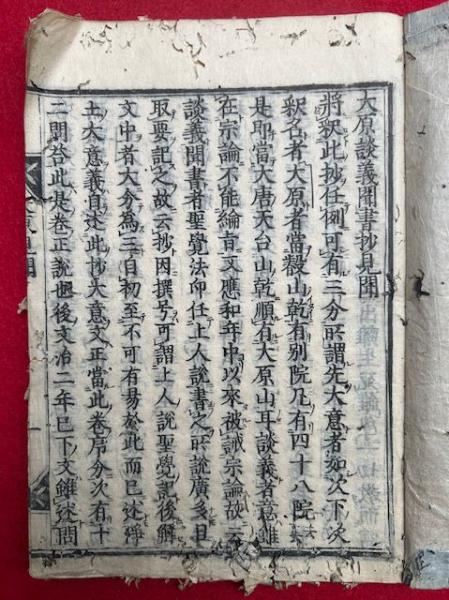 大原談義聞書抄見聞
將釈此抄任例可有三分所謂先大意者如次下次
釈名者大原者當叡山乾有別院凡有四十八院
是即當大唐天台山乾順有大原山耳談義者意雖
在宗論不能綸旨文應和年中以來被誡宗論故云
談義聞書者聖覺法印任上人說書之所說廣多且
取要記之故云抄因撰号可謂上人說聖覺記後解
文中者大分為三自初至不可有易於此而已述淨
土大意義自述此抄大意文正當此卷序分次有十
二問答此是卷正說也後文治二年已下文雖述問